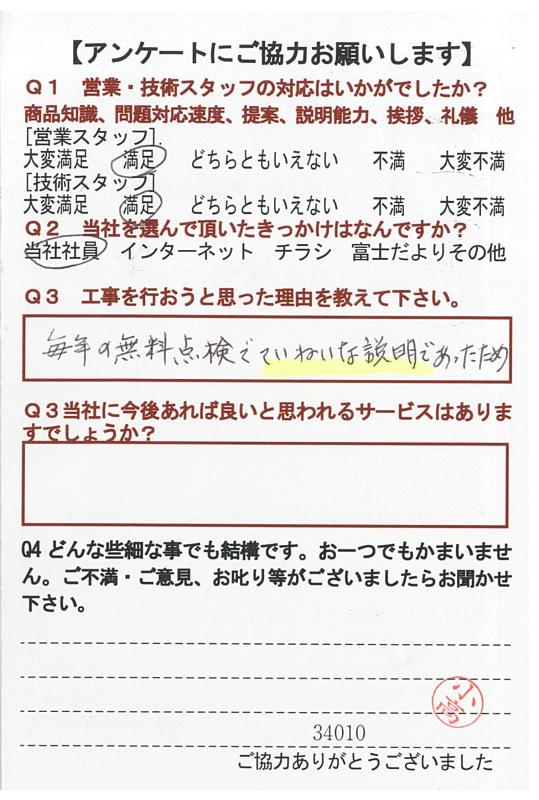 【アンケートにご協力お願いします】
Q1　営業・技術スタッフの対応はいかがでしたか？
商品知識、問題対応速度、提案、説明能力、挨拶、礼儀　他
[営業スタッフ]
大変満足　満足　どちらともいえない　不満　大変不満
[技術スタッフ]
大変満足　満足　どちらともいえない　不満　大変不満
Q2　当社を選んで頂いたきっかけはなんですか？
当社社員　インターネット　チラシ　富士だよりその他
Q3　工事を行おうと思った理由を教えて下さい。
毎年の無料点検でていねいな説明であったため
Q3当社に今後あれば良いと思われるサービスはありま
すでしょうか？
Q4 どんな些細な事でも結構です。お一つでもかまいませ
ん。ご不満・ご意見、お叱り等がございましたらお聞かせ
下さい。
小高
34010
ご協力ありがとうございました